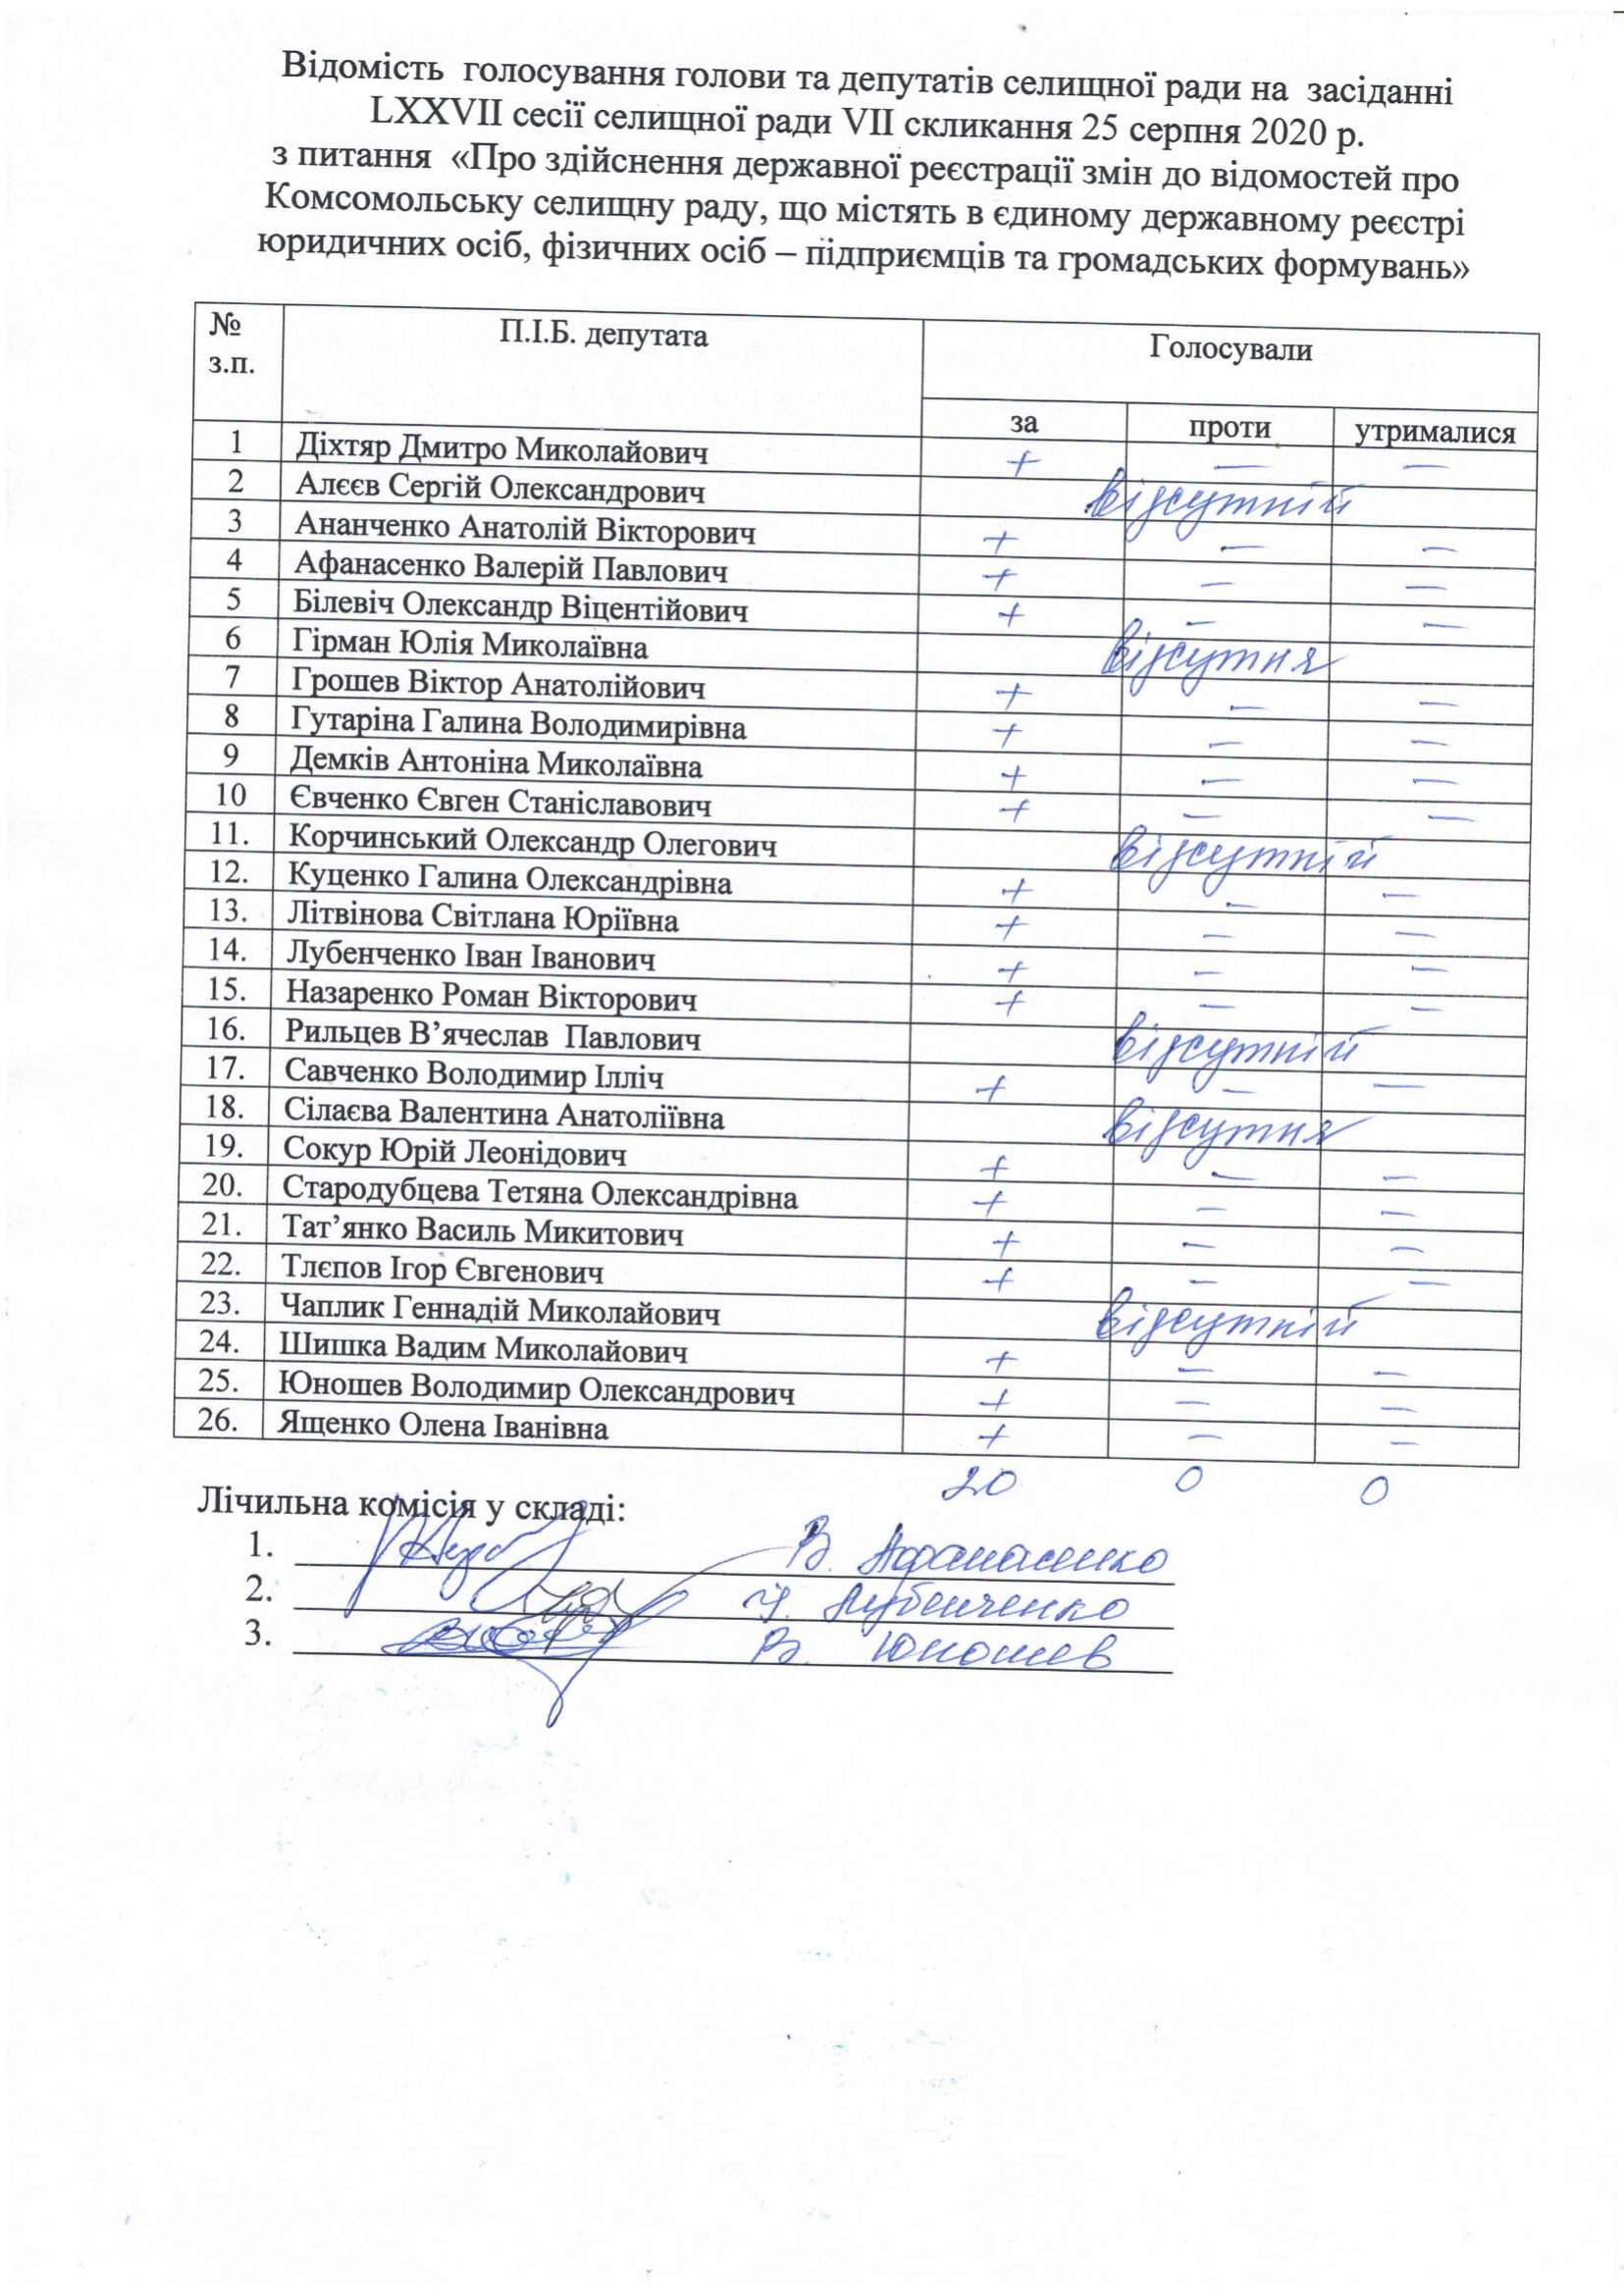 Відомість голосування голови та депутатів селищної ради на засіданні
LXXVII сесії селищної ради VII скликання 25 серпня 2020 р.
з питання «Про здійснення державної реєстрації змін до відомостей про
Комсомольську селищну раду, що містять в єдиному державному реєстрі
юридичних осіб, фізичних осіб – підприємців та громадських формувань»
№ з.п. П.І.Б. депутата Голосували
за проти утрималися
1 Діхтяр Дмитро Миколайович + — —
2 Алєєв Сергій Олександрович відсутній
3 Ананченко Анатолій Вікторович + — —
4 Афанасенко Валерій Павлович + — —
5 Білевіч Олександр Віцентійович + — —
6 Гірман Юлія Миколаївна відсутня
7 Грошев Віктор Анатолійович + — —
8 Гутаріна Галина Володимирівна + — —
9 Демків Антоніна Миколаївна + — —
10 Євченко Євген Станіславович + — —
11. Корчинський Олександр Олегович відсутній
12. Куценко Галина Олександрівна + — —
13. Літвінова Світлана Юріївна + — —
14. Лубенченко Іван Іванович + — —
15. Назаренко Роман Вікторович + — —
16. Рильцев В’ячеслав Павлович відсутній
17. Савченко Володимир Ілліч + — —
18. Сілаєва Валентина Анатоліївна відсутня
19. Сокур Юрій Леонідович + — —
20. Стародубцева Тетяна Олександрівна + — —
21. Тат’янко Василь Микитович + — —
22. Тлєпов Ігор Євгенович + — —
23. Чаплик Геннадій Миколайович відсутній
24. Шишка Вадим Миколайович + — —
25. Юношев Володимир Олександрович + — —
26. Ященко Олена Іванівна + — —
20 0 0
Лічильна комісія у складі:
1. В. Афанасенко
2. І. Лубенченко
3. В. Юношев